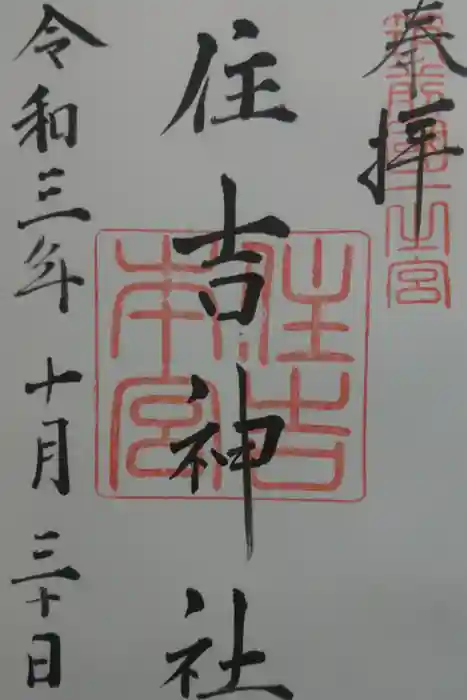 奉拝
筑前國一之宮
住吉神社
住吉本宮
令和三年十月三十日